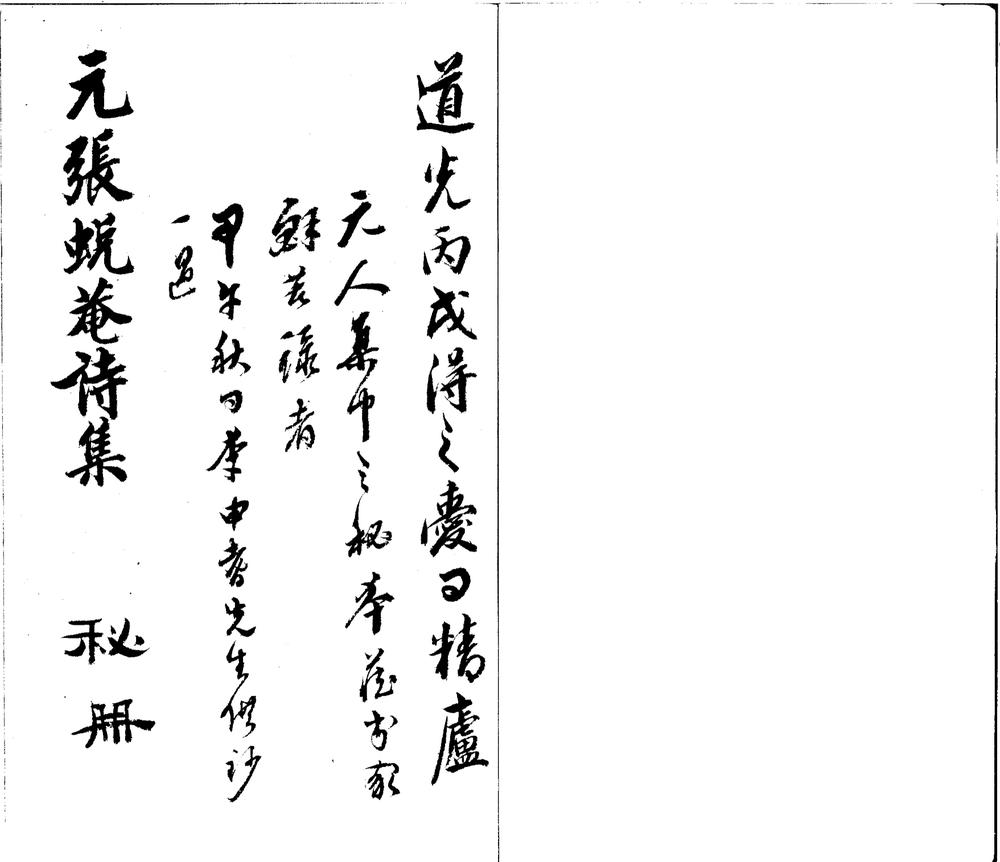 道光丙戌得之愛日精廬
元人集中之秘本藏書家
鮮著錄者
甲午秋日李申耆先生借鈔
一過
元張蛻菴詩集 秘冊